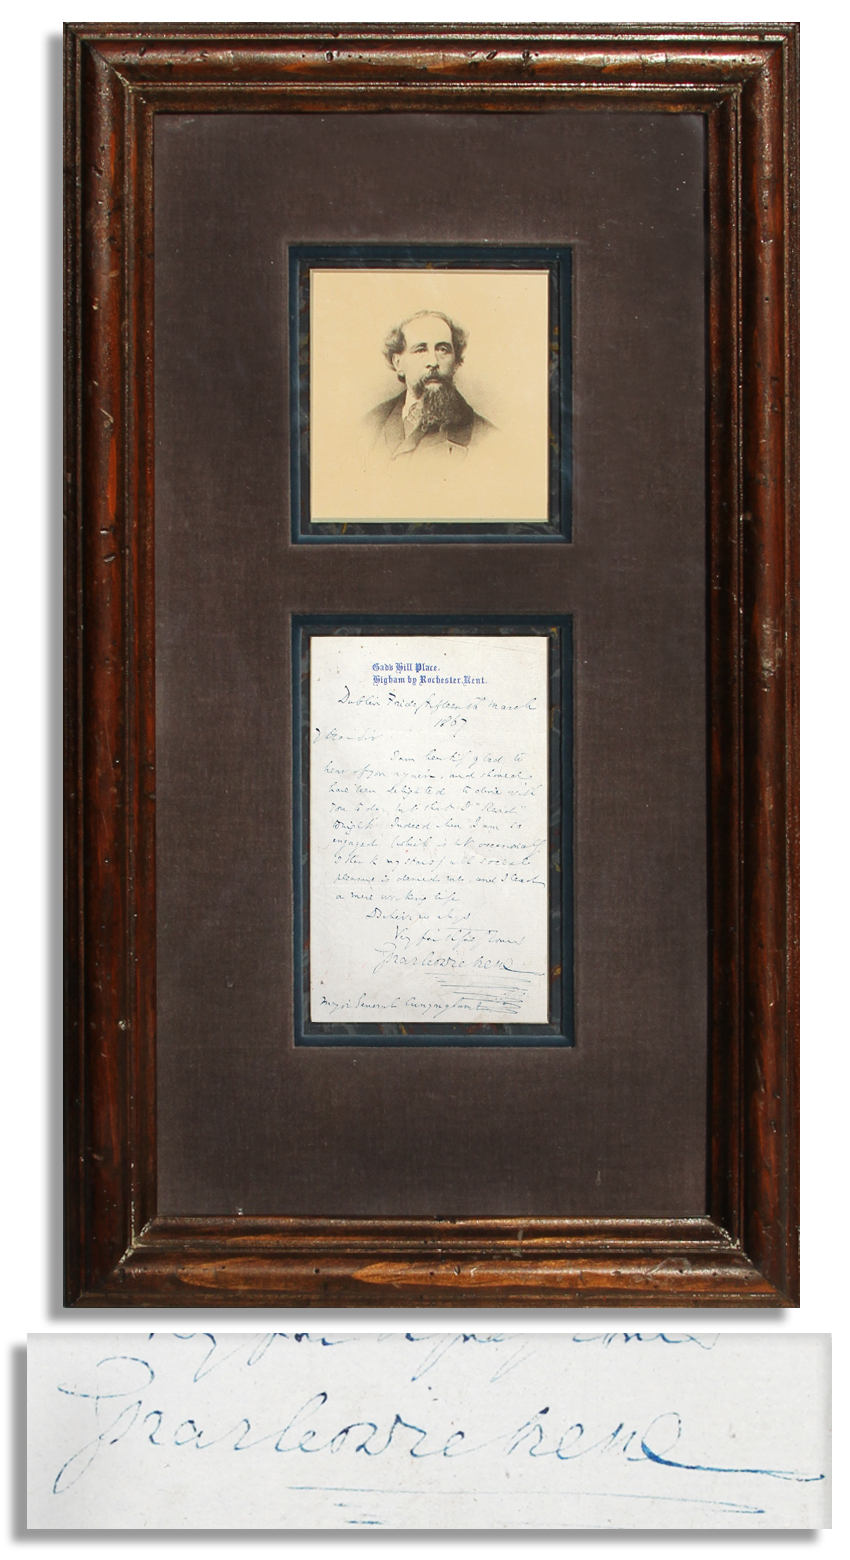 Gad's Hill Place.
Higham by Rochester, Kent.
Dublin Friday fifteenth March
1867
My Dear Sir
I am heartily glad to
hear of you again, and should
have been delighted to dine with
you today, but that I "Read"
tonight. Indeed when I am so
engaged (which is not occasionally
I thank my stars) all social
pleasure is denied me, and I lead
a mere working life
Believe me always
Very faithfully Yours
Charles Dickens
Major General Cunynghame
Very faithfully Yours
Charles Dickens